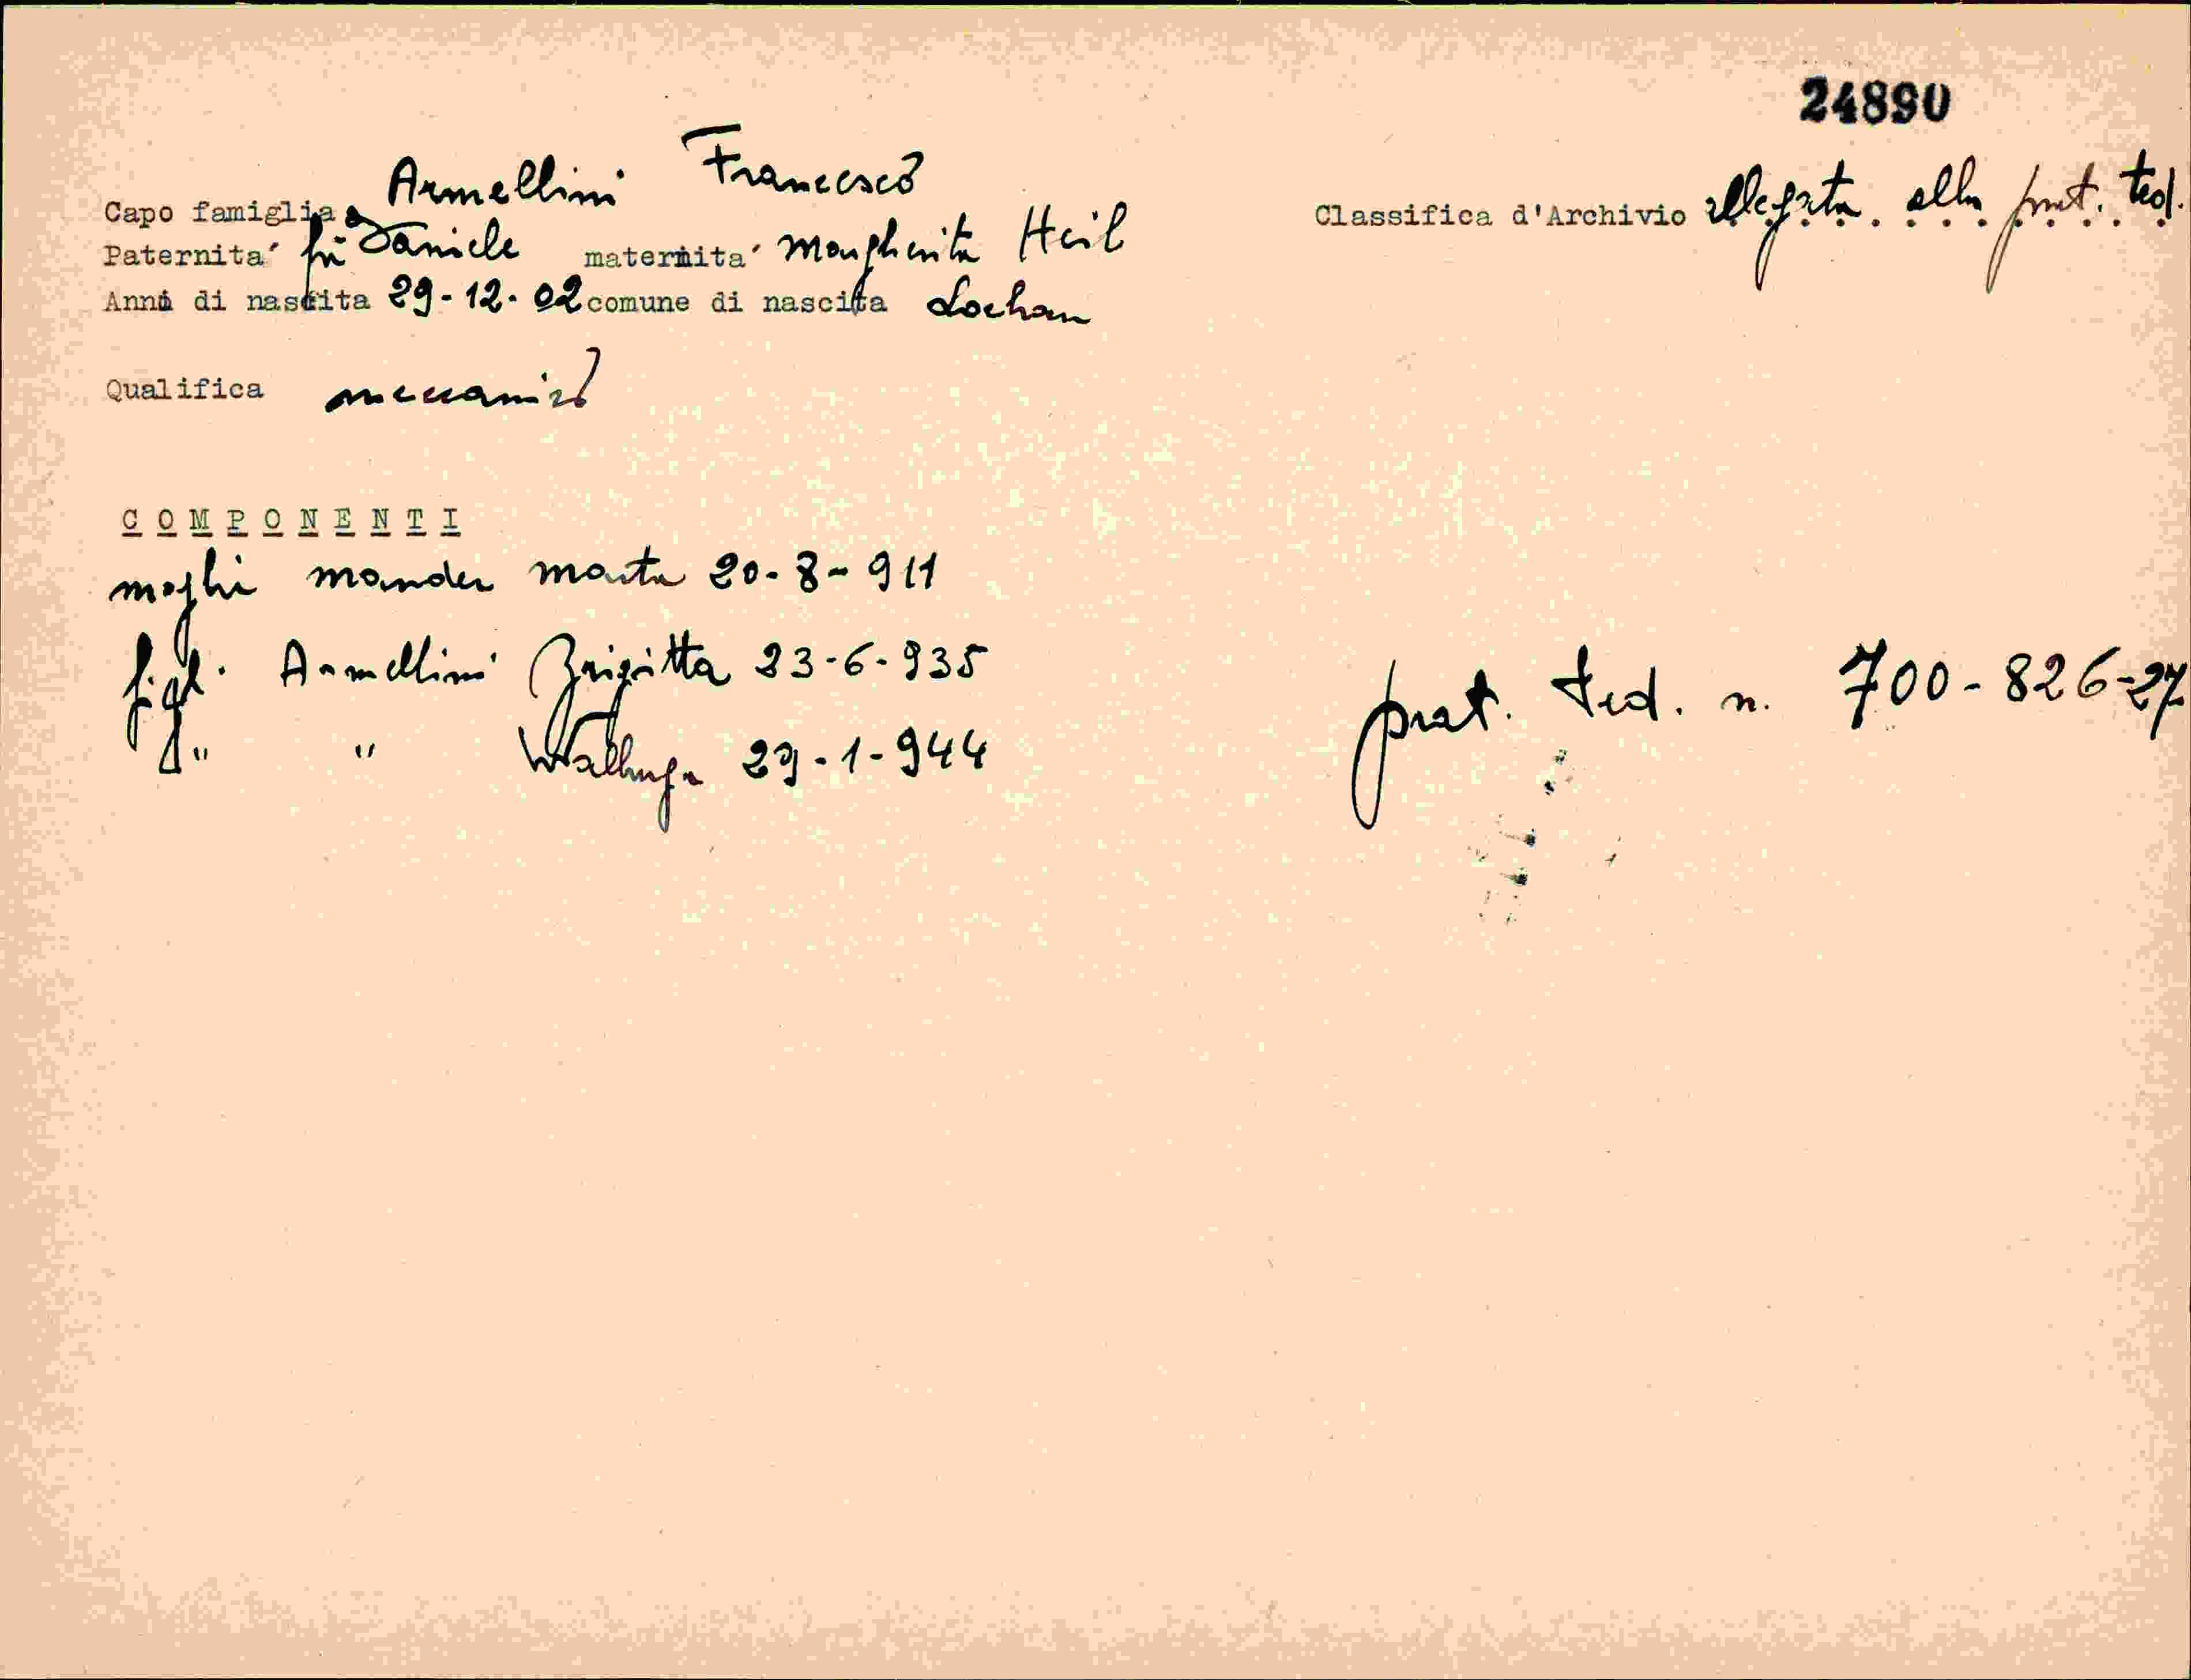 24890
Capo famiglia Armellini Francesco
Classifica d'Archivio allegata alla prat. ted.
Paternita' fu Daniele maternita' Margherita Heil
Anno di nascita 29-12-02 comune di nascita Lochau
Qualifica meccanico
COMPONENTI
moglie Mander Marta 20-8-911
figl. Armellini Brigitta 23-6-935
" " Walburga 29-1-944
prat. ted. n. 700-826-27